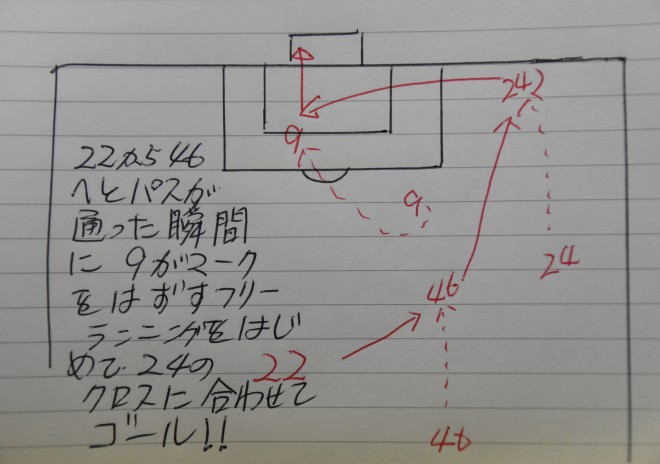 242
9
9
24
46
22
46
22から46
へとパスが
通った瞬間
に9がマーク
をはずすフリー
ランニングをはじ
めて24の
クロスに合わせて
ゴール!!